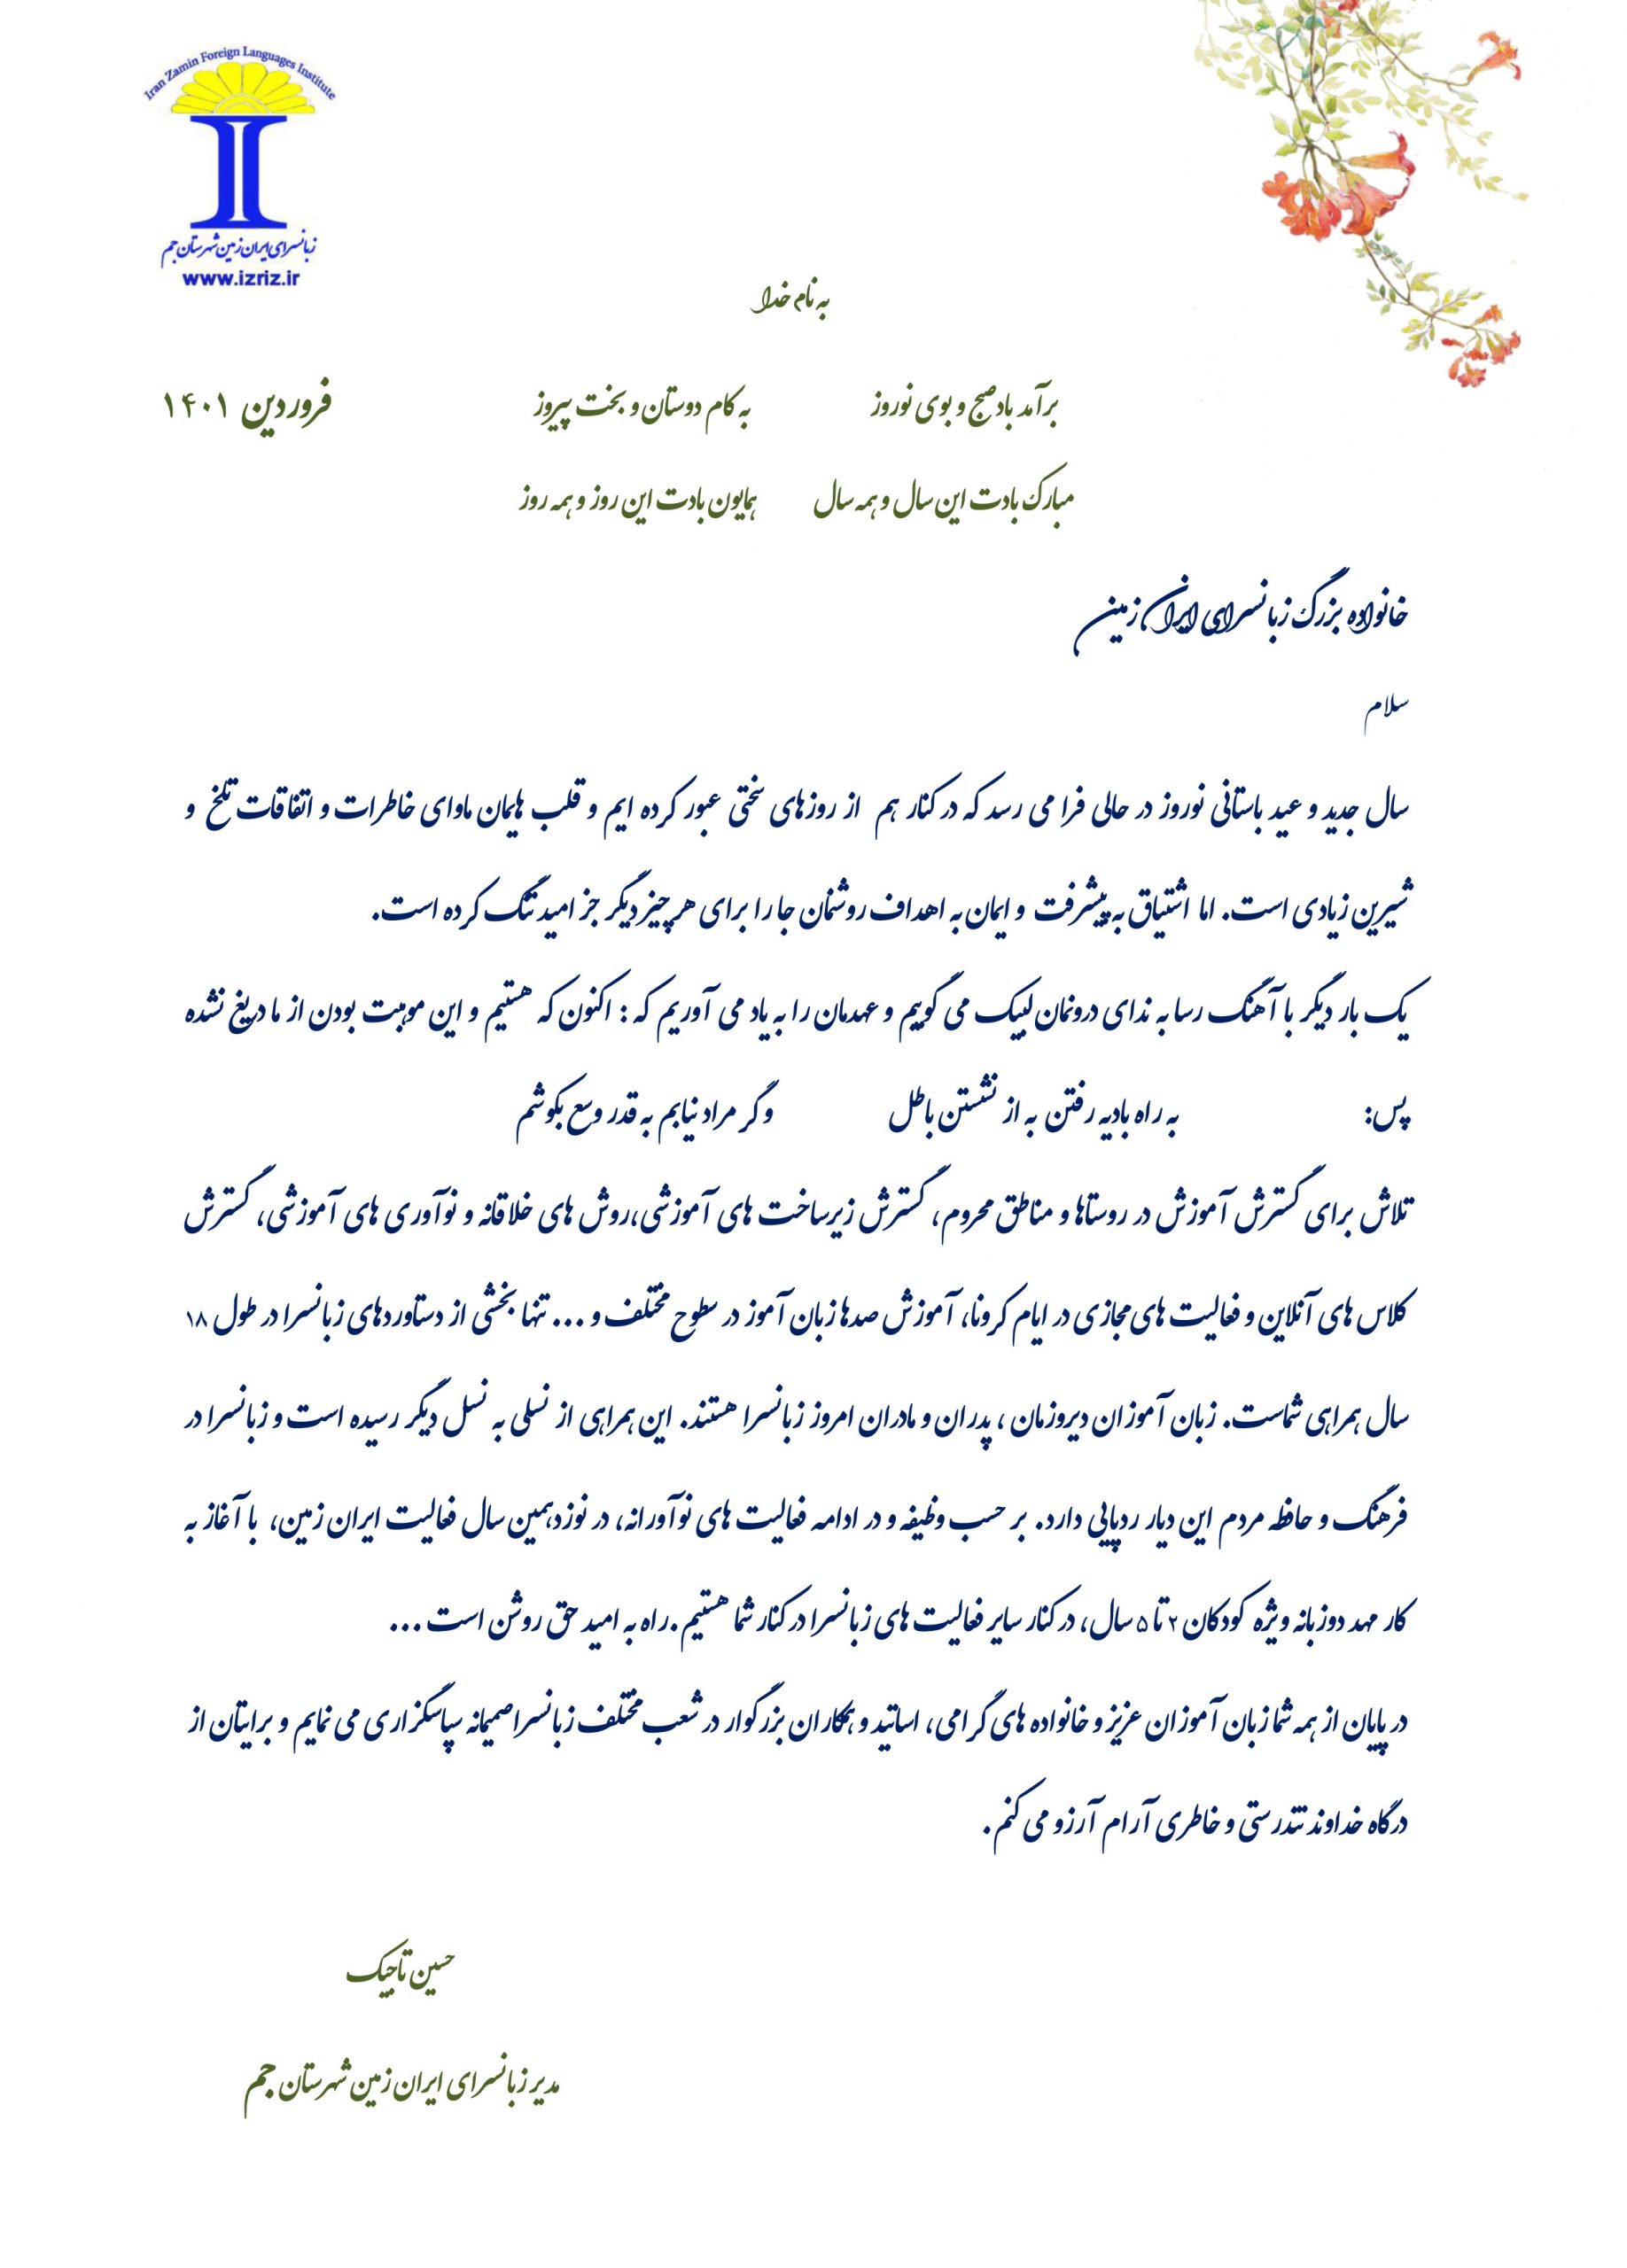 Iran Zamin Foreign Languages Institute
زبانسرای ایران زمین شهرستان جم
www.izriz.ir
به نام خدا
برآمد باد صبح و بوی نوروز به کام دوستان و بخت پیروز فروردین ۱۴۰۱
مبارک بادت این سال و همه سال همایون بادت این روز و همه روز
خانواده بزرگ زبانسرای ایران زمین
سلام
سال جدید و عید باستانی نوروز در حالی فرا می رسد که در کنار هم از روزهای سختی عبور کرده ایم و قلب هایمان ماوای خاطرات و اتفاقات تلخ و
شیرین زیادی است. اما اشتیاق به پیشرفت و ایمان به اهداف روشنمان جا را برای هر چیز دیگر جز امید تنگ کرده است.
یک بار دیگر با آهنگ رسا به ندای درونمان لبیک می گوییم و عهدمان را به یاد می آوریم که : اکنون که هستیم و این موهبت بودن از ما دریغ نشده
پس: به راه بادیه رفتن به از نشستن باطل و گر مراد نیابم به قدر وسع بکوشم
تلاش برای گسترش آموزش در روستاها و مناطق محروم، گسترش زیرساخت های آموزشی،روش های خلاقانه و نوآوری های آموزشی، گسترش
کلاس های آنلاین و فعالیت های مجازی در ایام کرونا، آموزش صدها زبان آموز در سطوح مختلف و ... تنها بخشی از دستاوردهای زبانسرا در طول ۱۸
سال همراهی شماست. زبان آموزان دیروزمان ، پدران و مادران امروز زبانسرا هستند. این همراهی از نسلی به نسل دیگر رسیده است و زبانسرا در
فرهنگ و حافظه مردم این دیار ردپایی دارد. بر حسب وظیفه و در ادامه فعالیت های نوآورانه، در نوزدهمین سال فعالیت ایران زمین، با آغاز به
کار مهد دوزبانه ویژه کودکان ۲ تا ۵ سال، در کنار سایر فعالیت های زبانسرا در کنار شما هستیم.راه به امید حق روشن است ...
در پایان از همه شما زبان آموزان عزیز و خانواده های گرامی، اساتید و همکاران بزرگوار در شعب مختلف زبانسرا صمیمانه سپاسگزاری می نمایم و برایتان از
درگاه خداوند تندرستی و خاطری آرام آرزو می کنم.
حسین تاجیک
مدیر زبانسرای ایران زمین شهرستان جم